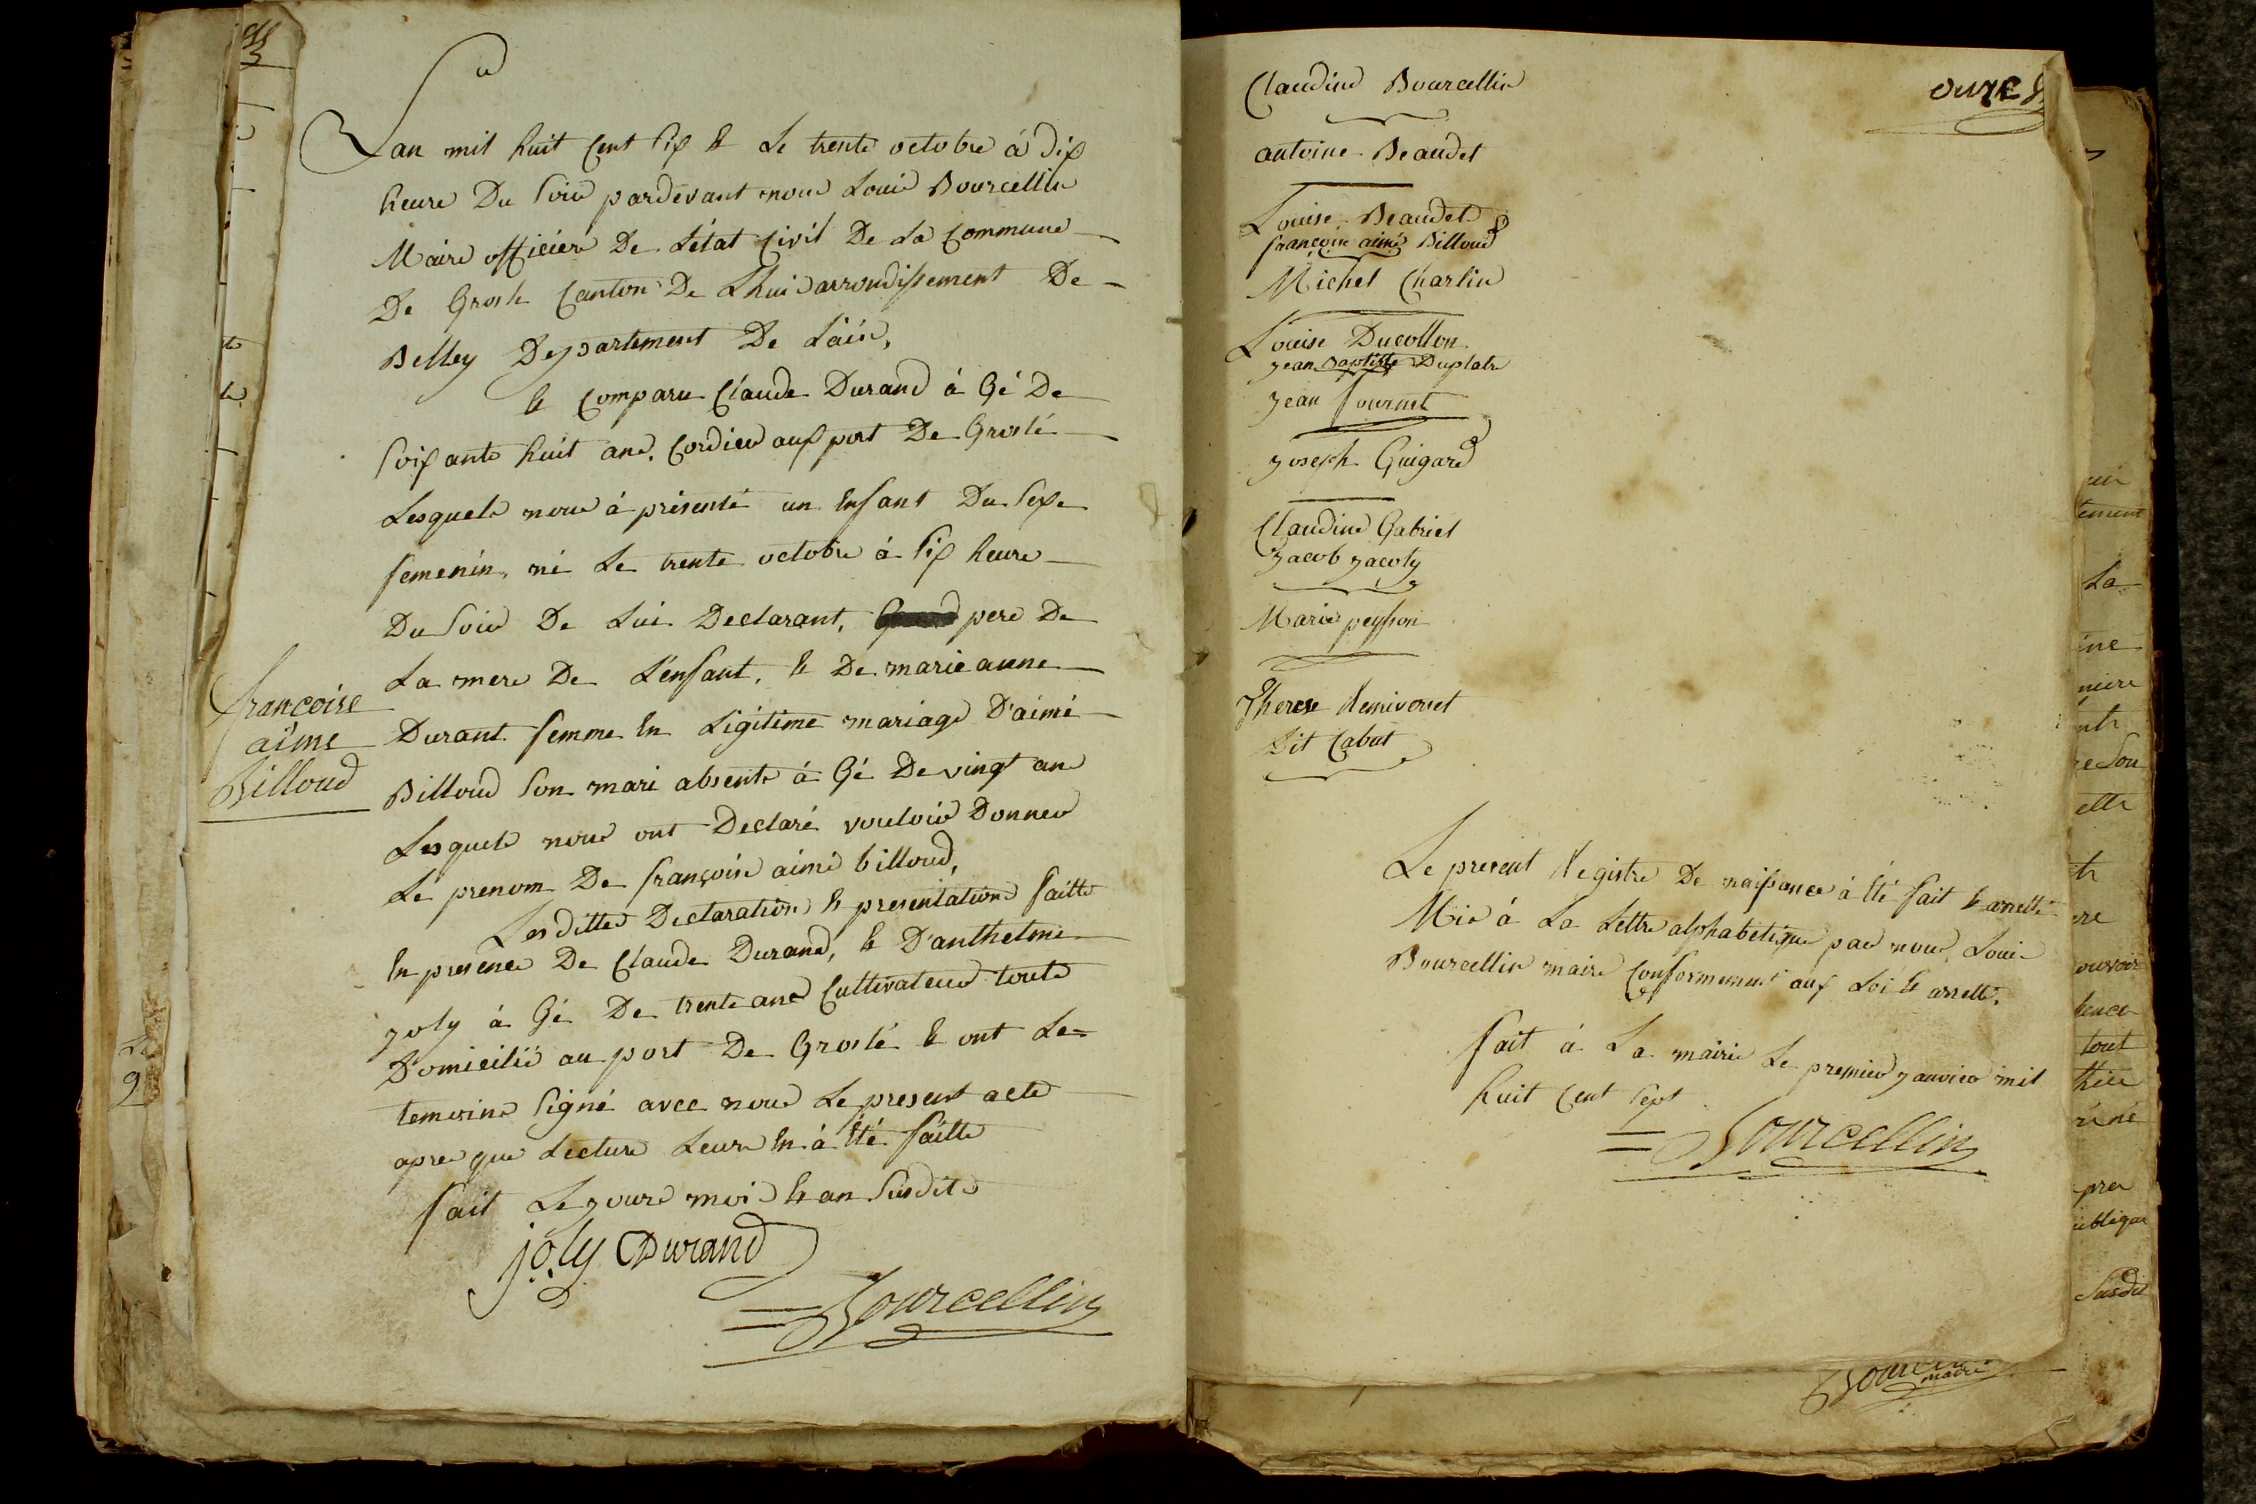 Lan mil huit Cent Six & Le trente octobre à dix
heure Du Soir pardevant nous Louis Bourcellin
Maire officier De L'état Civil De La Commune
De Groslé Canton De Lhuis arrondissement De
Belley Departement De L'ain,
& Comparu Claude Durand à Gé De
Soixante huit ans, Cordier aux port De Groslé
Lesquels nous à présenté un Enfant Du Sexe
femenin, né Le trente octobre à Six heure
Du Soir De Lui Declarant, pere De
La mere De L'enfant, & De marie anne
françoise
aimé
Billoud
Durant femme En Légitime mariage D'aimé
Billoud Son mari absente à Gé De vingt ans
Lesquels nous ont Declaré vouloir Donner
Le prenom De françoise aimé billoud,
Lesdittes Declaration & presentations faitte
En presence De Claude Durand, & D'anthelme
joly à Gé De trente ans Cultivateurs touts
Domicilié au port De Groslé & ont Le
temoins Signé avec nous Le present acte
apres que Lecture Leurs En à Eté faitte
fait Le jours mois & an Susdits
joly Durand
Bourcellin
onze
Claudine Bourcellin
antoine Beaudet
Louise Beaudet
françoise aimé Billoud
Michel Charlin
Louise Ducollon
jean Baptiste Duplatre
jean fournet
joseph Guigard
Claudine Gabriel
Jacob jacoty
Marie peysson
Therese Remivernet
Dit Cabut
Le present Registre De naissance à Eté fait & arretté
Mis à La Lettre alphabetique par nous, Louis
Bourcellin maire Conformement aux Loi & arretté,
fait à La mairie Le premier janvier mil
huit Cent Sept
Bourcellin
maire